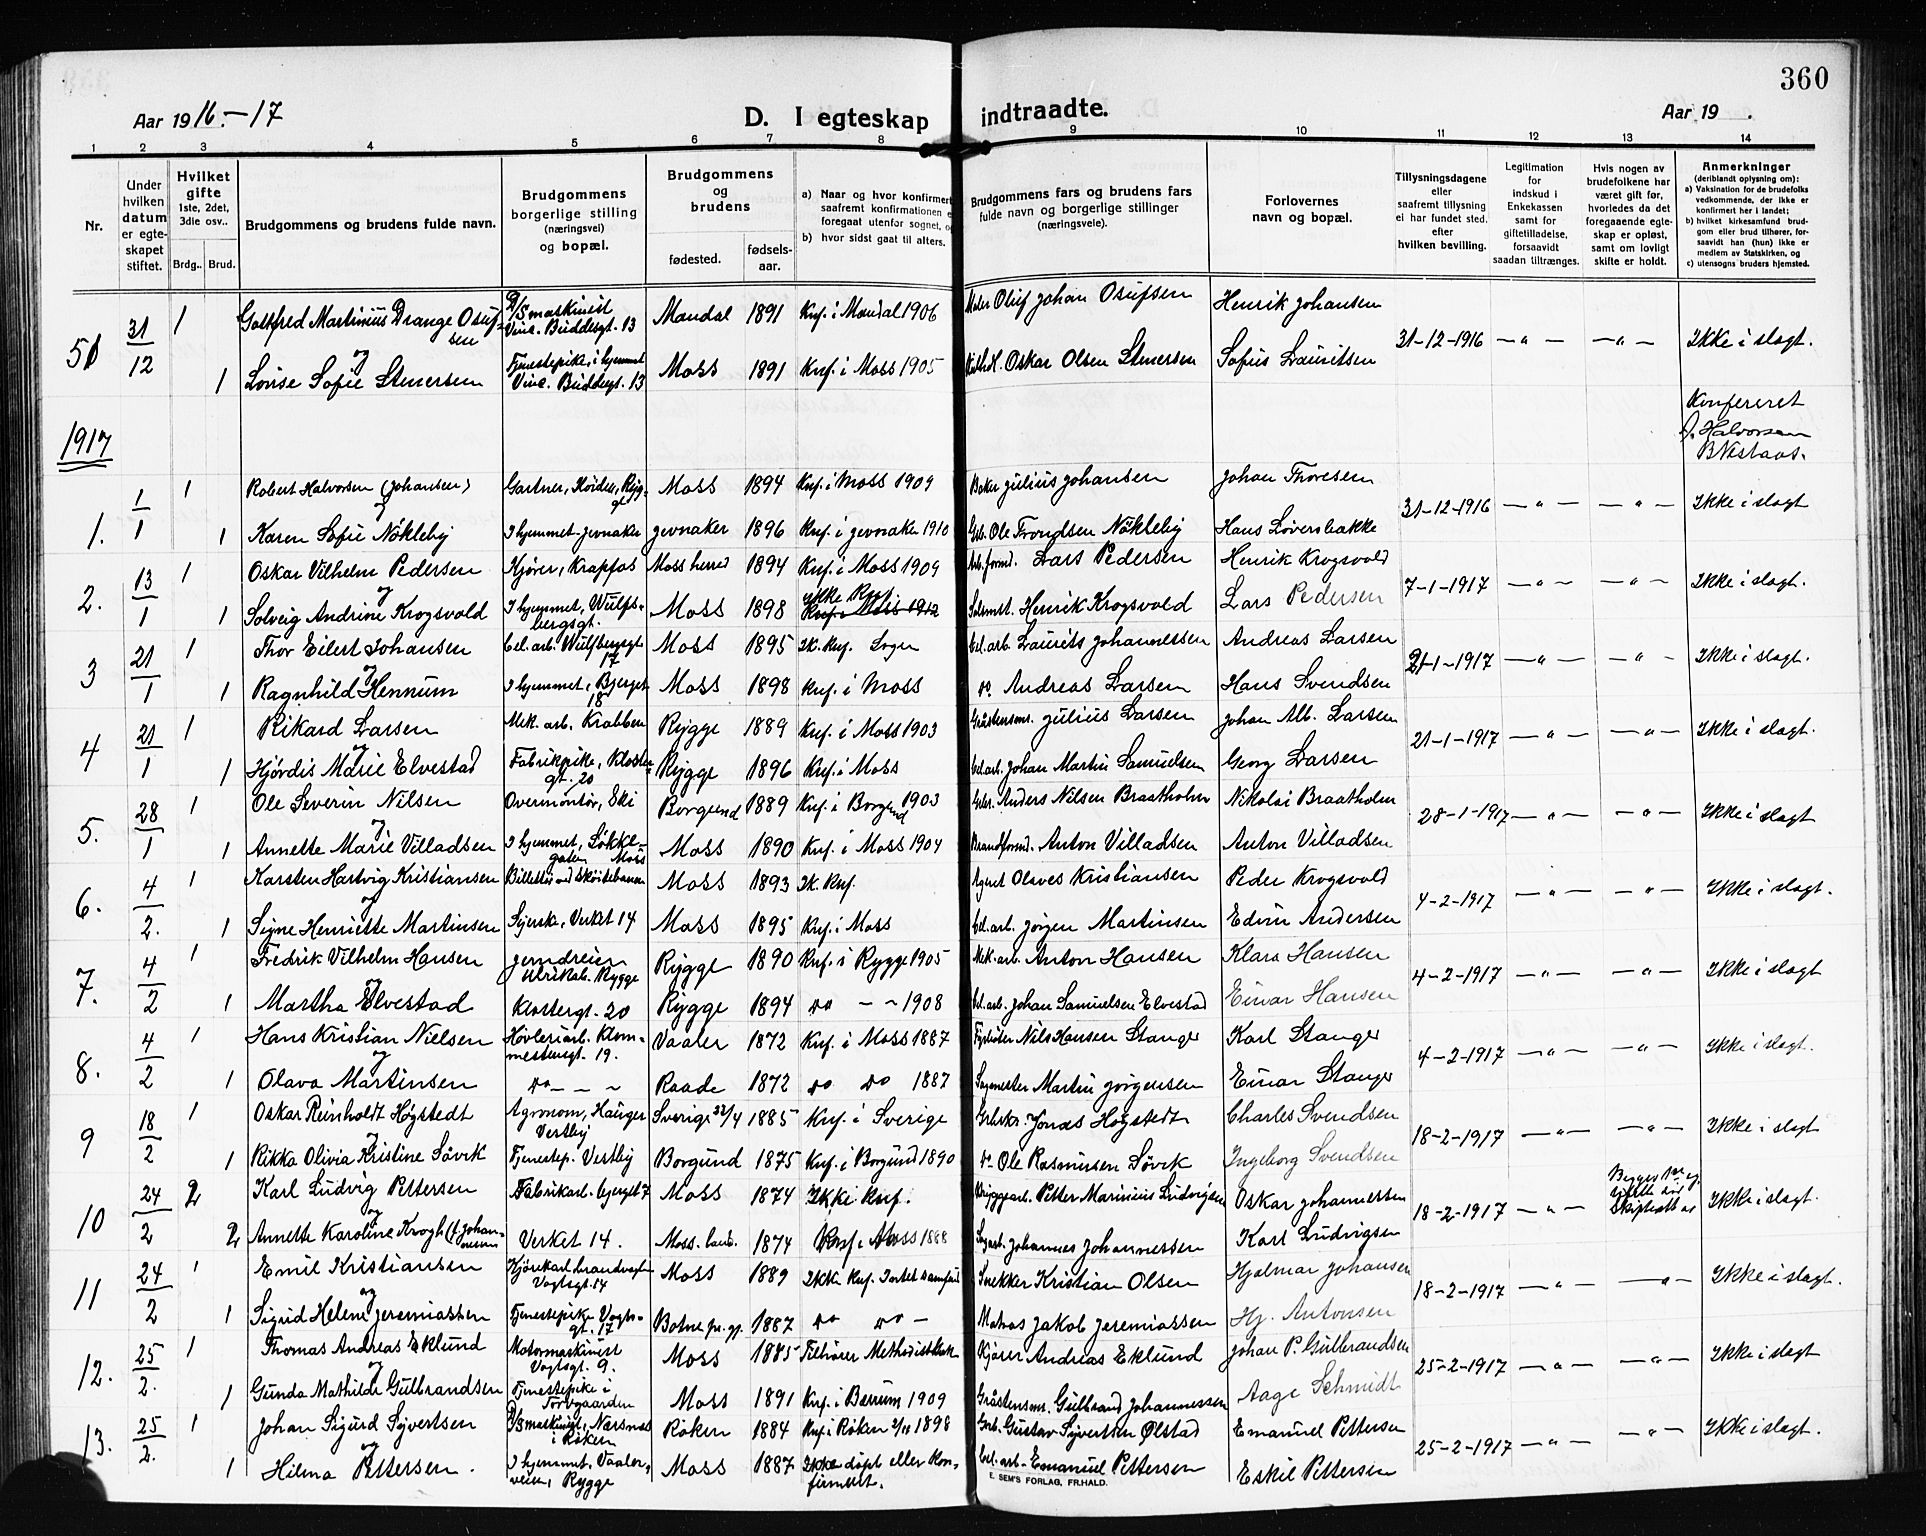 360
Aar 1916.-17
D. I egteskap indtraadte.
Aar 19 .
1 2 3 4 5 6 7 8 9 10 11 12 13 14
Nr.
Under hvilken datum er egteskapet stiftet.
Hvilket gifte 1ste, 2det, 3die osv..
Brdg.. Brud.
Brudgommens og brudens fulde navn.
Brudgommens borgerlige stilling (næringsvei) og bopæl.
Brudgommens og brudens
fødested. fødsels-aar.
a) Naar og hvor konfirmert, saafremt konfirmationen er foregaat utenfor sognet, og
b) hvor sidst gaat til alters.
Brudgommens fars og brudens fars fulde navn og borgerlige stillinger (næringsveie).
Forlovernes navn og bopæl.
Tillysningsdagene eller saafremt tillysning ei har fundet sted. efter hvilken bevilling.
Legitimation for indskud i Enkekassen samt for giftetilladelse, forsaavidt saadan tiltrænges.
Hvis nogen av brudefolkene har været gift før, hvorledes da det foregaaende egteskap er opløst, samt om lovlig skifte er holdt.
Anmerkninger (deriblandt oplysning om): a) Vaksination for de brudefolks vedkommende, der ikke er konfirmert her i landet; b) hvilket kirkesamfund brudgom eller brud tilhører, forsaavidt han (hun) ikke er medlem av Statskirken, og c) utensogns bruders hjemsted.
51 31/12 1 Gottfred Martinius Drange Osufsen D/S maskinist Vinc. Buddesgt. 13 Mandal 1891 Knf. i Mandal 1906 Maler Oluf Johan Osufsen Henrik Johansen 31-12-1916 —"— —"— Ikke i slegt.
og
1 Lovise Sofie Stenersen Tjenestepike, i hjemmet Vinc. Buddesgt. 13 Moss 1891 Knf. i Moss 1905 Oskar Olsen Stenersen Sofus Lauritsen
Konfereret
Halvorsen
1917
1. 1/1 1 Robert Halvorsen (Johansen) Gartner, Moss 1894 Knf. i Moss 1909 Baker Julius Johansen Johan Thoresen 31-12-1916 —"— —"— Ikke i slegt
og
1 Karen Sofie Nökleby I hjemmet, Jevnaker Jevnaker 1896 Knf. i Jevnaker 1910 Ole Trondsen Nökleby Hans Löversbakke
2. 13/1 1 Oskar Vilhelm Pedersen Kjörer, Krapfos Moss herred 1894 Knf. i Moss 1909 Arb.formd. Lars Pedersen Henrik Krogsvold 7-1-1917 —"— —"— Ikke i slegt.
og ikke Knf.
1 Solveig Andrine Krogsvold I hjemmet, Wulfsbergsgt. Moss 1898 Knf. i Moss 1912 Henrik Krogsvold Lars Pedersen
3 21/1 1 Thor Eilert Johansen Cel. arb. Wulfsbergsgt 17 Moss 1895 Ik. Knf. Cel. arb. Laurits Johannessen Andreas Larsen 21-1-1917 —"— —"— Ikke i slegt.
og
1 Ragnhild Hennum I hjemmet, Bjerget 18 Moss 1898 Knf. i Moss do Andreas Larsen Hans Svendsen
4 21/1 1 Rikard Larsen Mek. arb. Krabben Rygge 1889 Knf. i Moss 1903 Julius Larsen Johan Alb. Larsen 21-1-1917 —"— —"— Ikke i slegt.
og
1 Hjördis Marie Elvestad Fabrikpike, Klostergt. 20 Rygge 1896 Knf. i Moss Cel. arb. Johan Martin Samuelsen Georg Larsen
5. 28/1 1 Ole Severin Nilsen Overmontör, Ski Borgund 1889 Knf. i Borgund 1903 Anders Nilsen Braatholm Nikolai Braatholm 28-1-1917 —"— —"— Ikke i slegt
og
1 Annette Marie Villadsen I hjemmet, Løkkegaten Moss Moss 1890 Knf. i Moss 1904 Brandformd. Anton Villadsen Anton Villadsen
6. 4/2. 1 Karsten Hartvig Kristiansen Billettör ved Sköitebanen Moss 1893 Ik. Knf. Agent Olaves Kristiansen Peder Krogsvold 4-2-1917 —"— —"— Ikke i slegt.
og
1 Signe Henriette Martinsen Syerske, Verket 14 Moss 1895 Knf. i Moss Cel. arb. Jörgen Martinsen Edvin Andersen
7. 4/2 1 Fredrik Vilhelm Hansen Jerndreier Rygge Rygge 1890 Knf. i Rygge 1905 Mek. arb. Anton Hansen Klara Hansen 4-2-1917 —"— —"— Ikke i slegt
og
1 Martha Elvestad Klostergt. 20 Rygge 1894 do - - 1908 Cel. arb. Johan Samuelsen Elvestad Einar Hansen
8. 4/2 1 Hans Kristian Nielsen Høvleriarb. Klommestensgt. 19. Vaaler 1872 Knf. i Moss 1887 Fyrböter Nils Hansen Stanger Karl Stanger 4-2-1917 —"— —"— Ikke i slegt.
og
1 Olava Martinsen do - - - Raade 1872 do do 1887 Sagmester Martin Jörgensen Einar Stanger
9 18/2 1 Oskar Reinholdt Högstedt Agronom, Hauger Vestby Sverige 1885 Knf. i Sverige Jonas Högstedt Charles Svendsen 18-2-1917 —"— —"— Ikke i slegt
og
1 Rikka Olivia Kristine Sövik Tjenestep. Vestby Borgund 1875 Knf. i Borgund 1890 do Ole Rasmussen Sövik Ingeborg Svendsen
10 24/2 2 Karl Ludvig Pettersen Fabrikarb. Bjerget 7 Moss 1874 Ikke Knf. Bryggearb. Petter Marinius Ludvigsen Oskar Johannessen 18-2-1917 —"— Ikke i slegt.
og
2 Annette Karoline Krogh (f. Johannessen Verket 14. Moss. land. 1874 Knf. i Moss 1888 Sagarb. Johannes Johannessen Karl Ludvigsen
11 24/2 1 Emil Kristiansen Vogtsgt. 14 Moss 1889 Ikke Knf. Snekker Kristian Olsen Hjalmar Johansen 18-2-1917 —"— —"— Ikke i slegt.
og
1 Sigrid Helene Jeremiassen Tjenestepike Vogtsgt. 17 Botne 1887 do do - Matros Jakob Jeremiassen Hj. Antonsen
12. 25/2. 1 Thomas Andreas Eklund Motormaskinist Vogtsgt. 9. Moss 1885 Tilhører Methodistkirk Kjörer Andreas Eklund Johan P. Gulbrandsen 25-2-1917 —"— —"— Ikke i slegt
og
1 Gunda Mathilde Gulbrandsen Tjenestepike i Torvgaarden Moss 1891 Knf. i Bærum 1909 Gulbrand Johannessen Aage Schmidt
13. 25/2. 1 Johan Sigurd Syvertsen D/S maskinist, Nærsnes i Röken Röken 1884 Knf. i Röken 2/10 1898 Gustav Syvertsen Ølstad Emanuel Pettersen 25-2-1917 —"— —"— Ikke i slegt.
og
1 Hilma Pettersen. I hjemmet, Vaalerveien, Rygge Moss 1887 Ikke döpt eller konfirmert. Cel. arb. Emanuel Pettersen Eskil Pettersen
E. SEM'S FORLAG, FR.HALD.